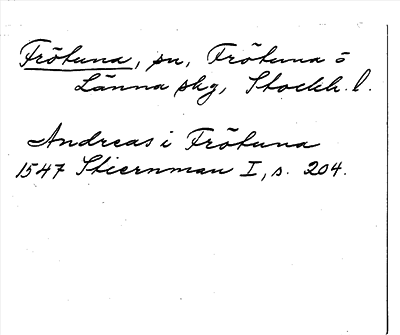 Frötuna, sn, Frötuna ö
Länna skg, Stockh. l.
Andreas i Frötuna
1547 Stiernman I, s. 204.